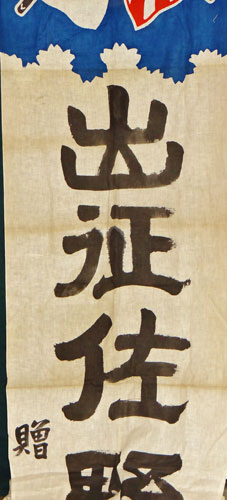 出征佐野
贈